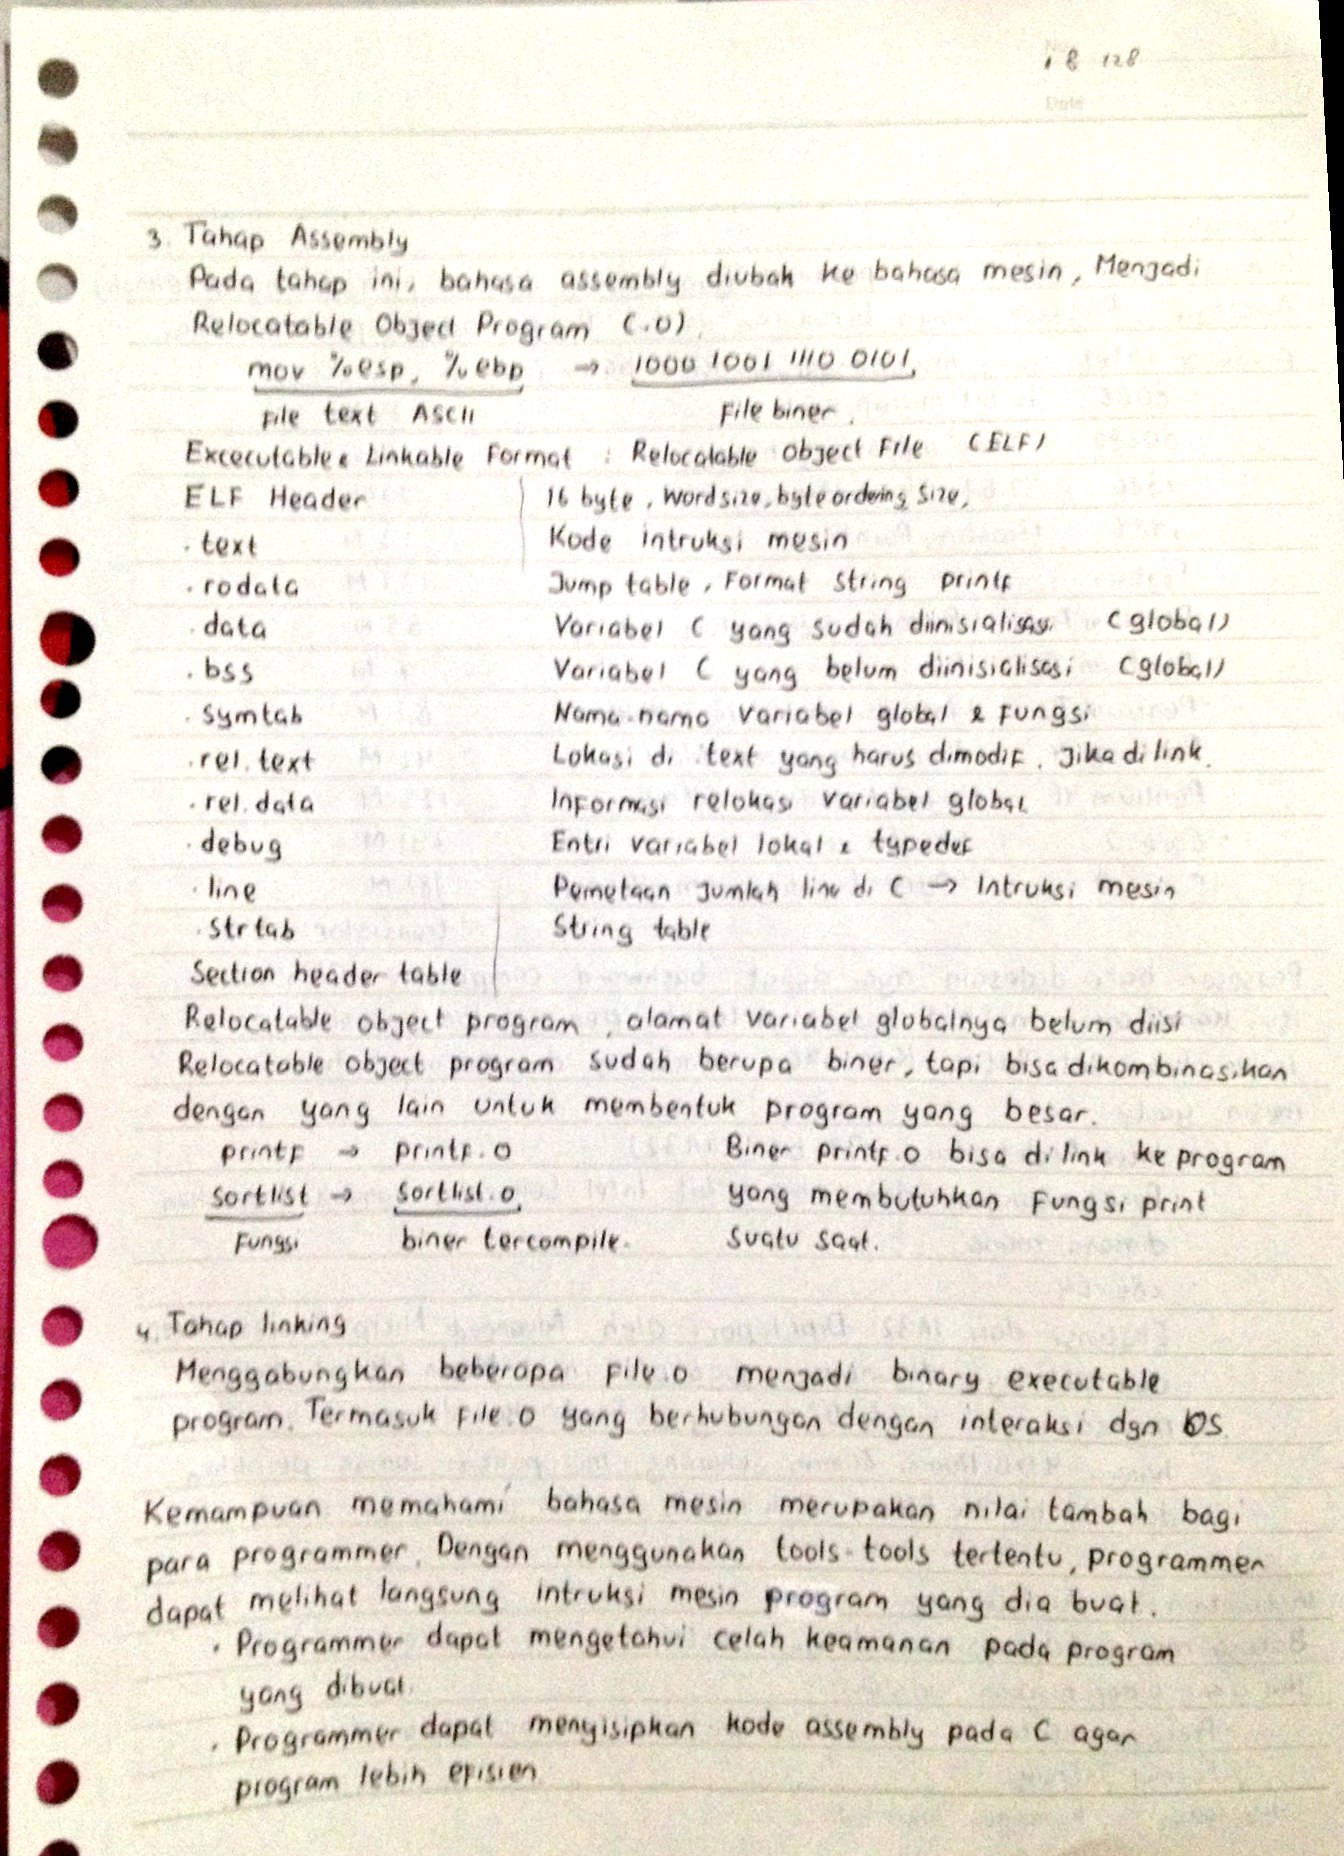 8 128
Date
3. Tahap Assembly
Pada tahap ini, bahasa assembly diubah ke bahasa mesin, Menjadi
Relocatable Object Program (.o).
mov %esp, %ebp → 1000 1001 1110 0101
File text ASCII File biner.
Excecutable & Linkable Format : Relocatable Object File (ELF)
ELF Header 16 byte, word size, byte ordering, size,
.text Kode intruksi mesin
.rodata Jump table, Format String printf
.data Variabel C yang sudah diinisialisasi (global)
.bss Variabel C yang belum diinisialisasi (global)
.symtab Nama-nama variabel global & Fungsi
.rel.text Lokasi di .text yang harus dimodif. Jika di link.
.rel.data Informasi relokasi variabel global
.debug Entri variabel lokal & typedef
.line Pemetaan Jumlah line di C → Intruksi mesin
.strtab String table
Section header table
Relocatable object program, alamat variabel globalnya belum diisi
Relocatable object program sudah berupa biner, tapi bisa dikombinasikan
dengan yang lain untuk membentuk program yang besar.
printf → printf.o Biner printf.o bisa di link ke program
sortlist → sortlist.o yang membutuhkan Fungsi print
Fungsi biner tercompile. suatu saat.
4. Tahap linking
Menggabungkan beberapa File.o menjadi binary executable
program. Termasuk File.o yang berhubungan dengan interaksi dgn OS
Kemampuan memahami bahasa mesin merupakan nilai tambah bagi
para programmer. Dengan menggunakan tools-tools tertentu, programmer
dapat melihat langsung intruksi mesin program yang dia buat.
. Programmer dapat mengetahui celah keamanan pada program
yang dibuat.
. Programmer dapat menyisipkan kode assembly pada C agar
program lebih efisien